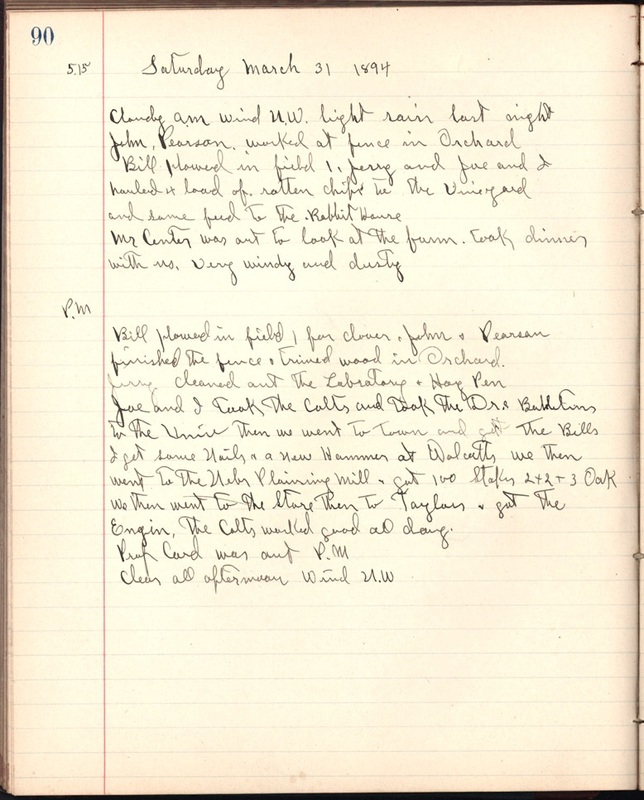 90
5.15 Saturday March 31 1894
Cloudy a.m wind N.W. light rain last night
John, Pearson. worked at fence in Orchard
Bill plowed in field 1, Jerry and Joe and I
hauled 4 load of rotten chips to the Vineyard
and some feed to the Rabbit House
Mr Center was out to look at the farm. took dinner
with us. Very windy and dusty
P.M
Bill plowed in field 1 for clover, John & Pearson
finished the fence & trimed wood in Orchard.
Jerry cleaned out the Labratory & Hog Pen
Joe and I took the Colts and took the Drs Bulletins
to the Univ then we went to town and got the Bills
I got some Nails & a new Hammer at Wolcotts we then
went to the Nebr Plaining Mill & got 100 Stakes 2+2+3 Oak
we then went to the Store then to Taylors & got the
Engin, The Colts worked good all day.
Prof Card was out P.M
Clear all afternoon Wind N.W